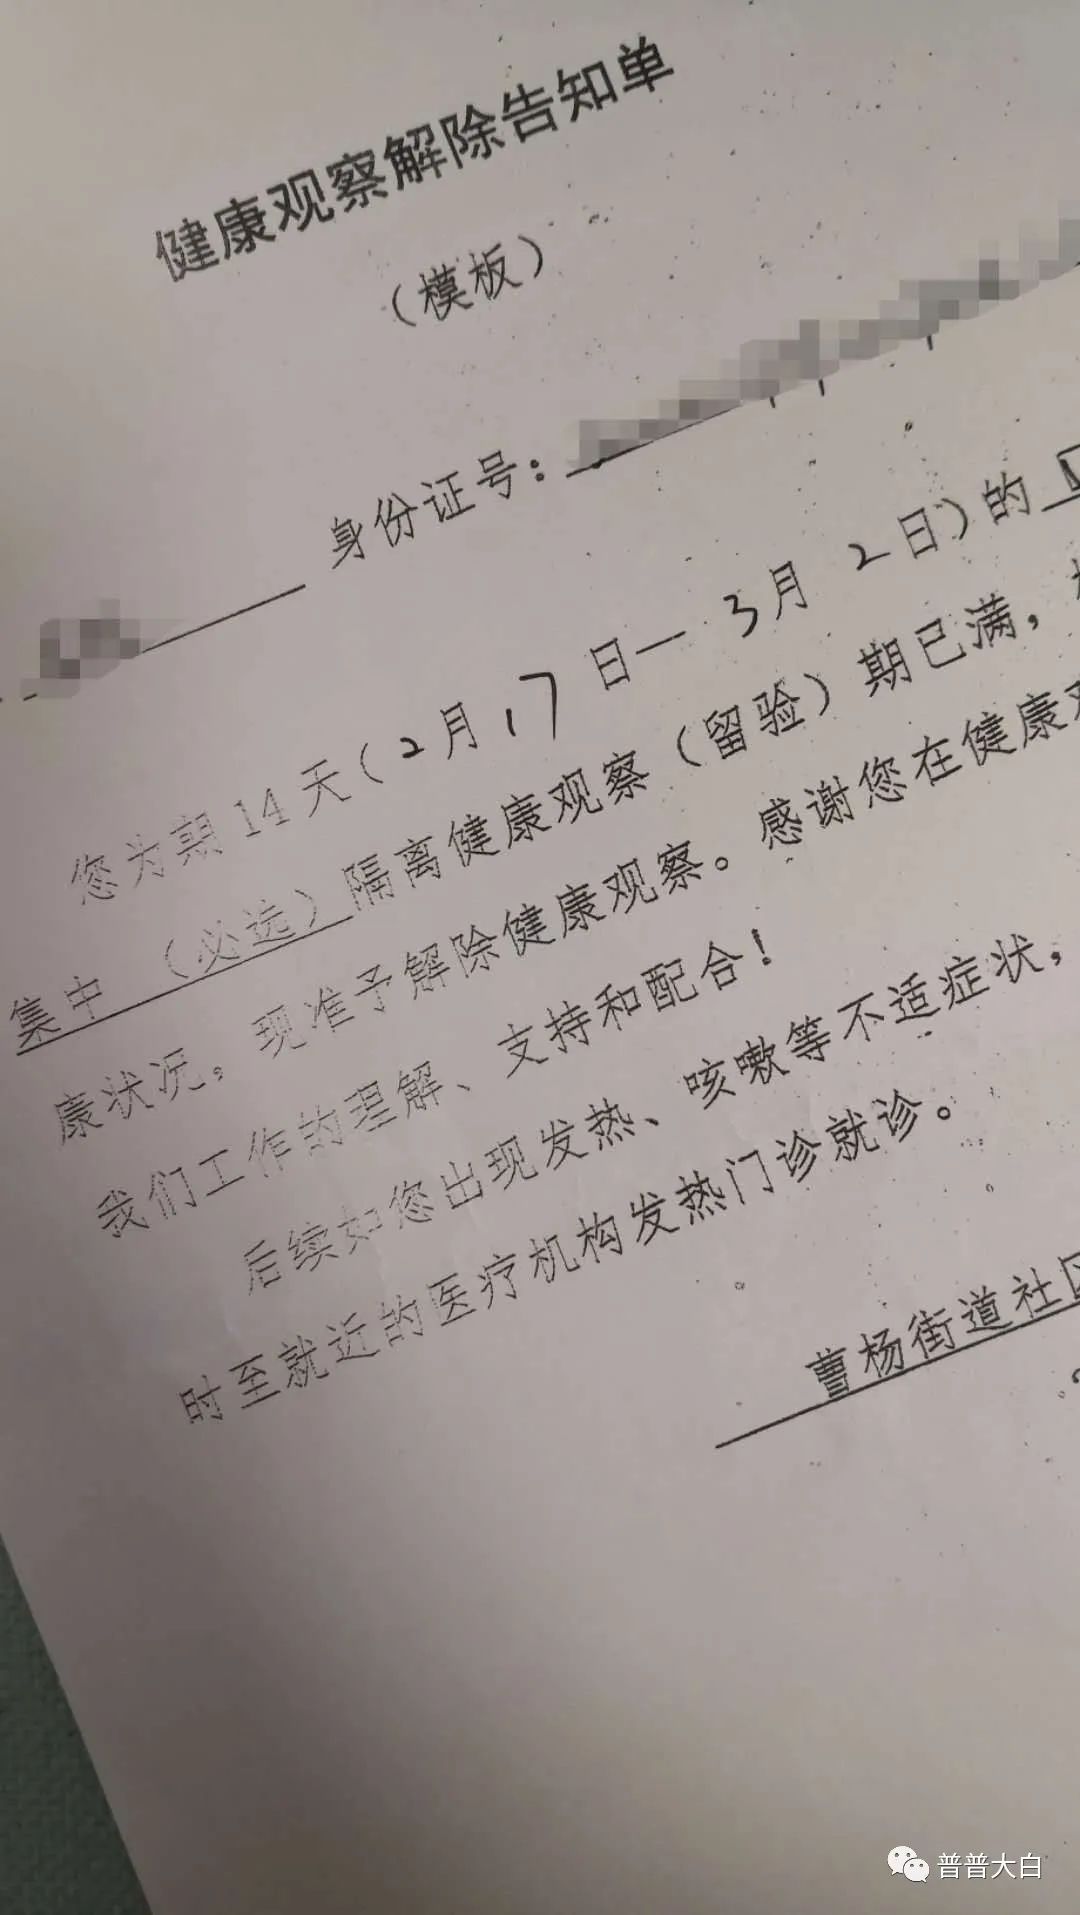 健康观察解除告知单
（模板）
身份证号：
您为期14天（2月17日—3月2日）的
集中（必选）隔离健康观察（留验）期已满，
康状况，现准予解除健康观察。感谢您在健康观
我们工作的理解、支持和配合！
后续如您出现发热、咳嗽等不适症状，
时至就近的医疗机构发热门诊就诊。
曹杨街道社区
普普大白